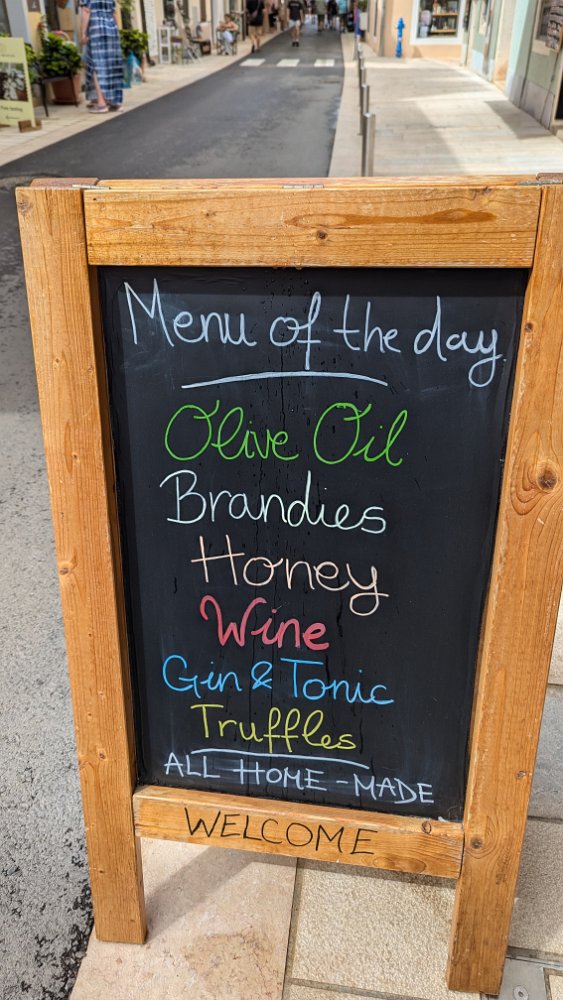 Menu of the day
Olive Oil
Brandies
Honey
Wine
Gin & Tonic
Truffles
ALL HOME-MADE
WELCOME